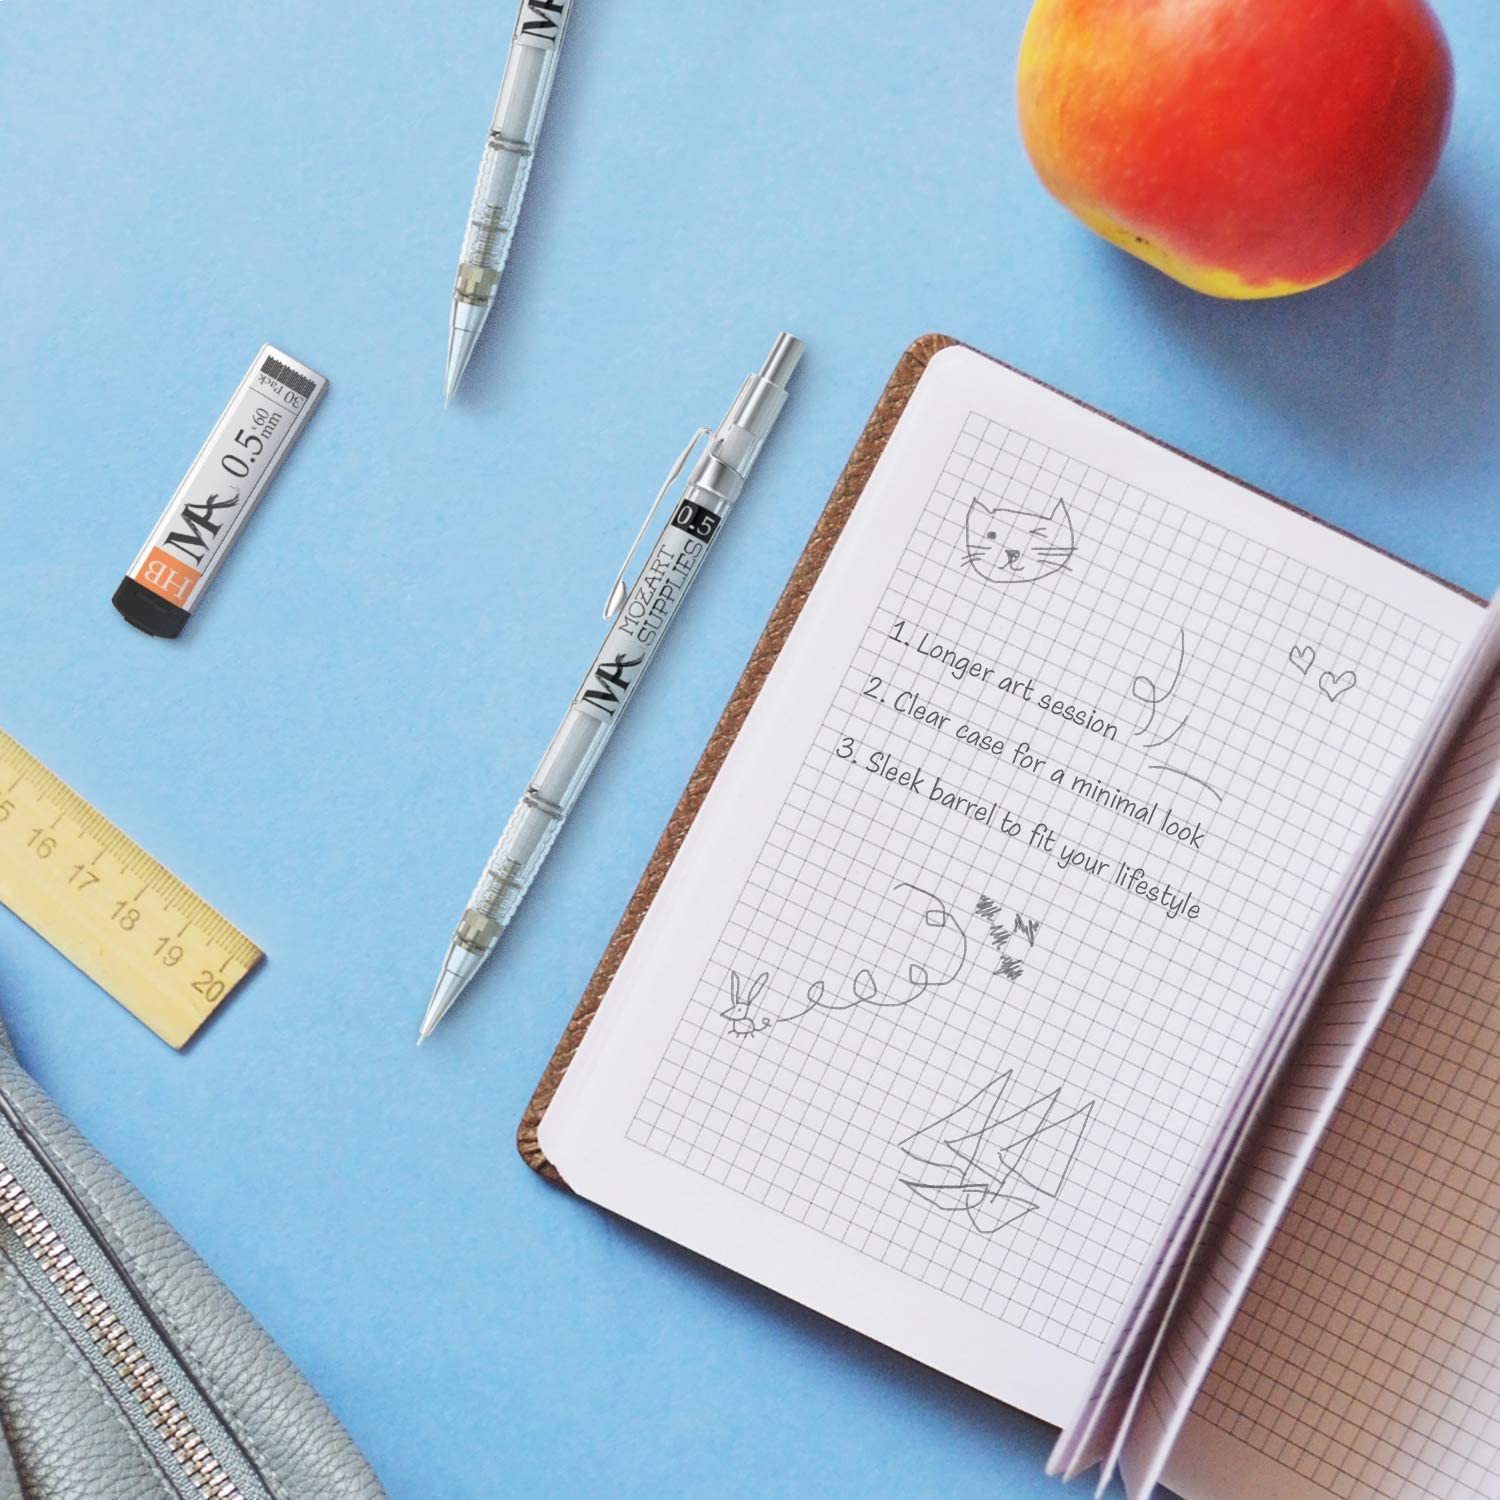 MA
30 Pack
0.5×60
mm
MA
HB
0.5
MOZART
SUPPLIES
MA
15 16 17 18 19 20
1. Longer art session
2. Clear case for a minimal look
3. Sleek barrel to fit your lifestyle